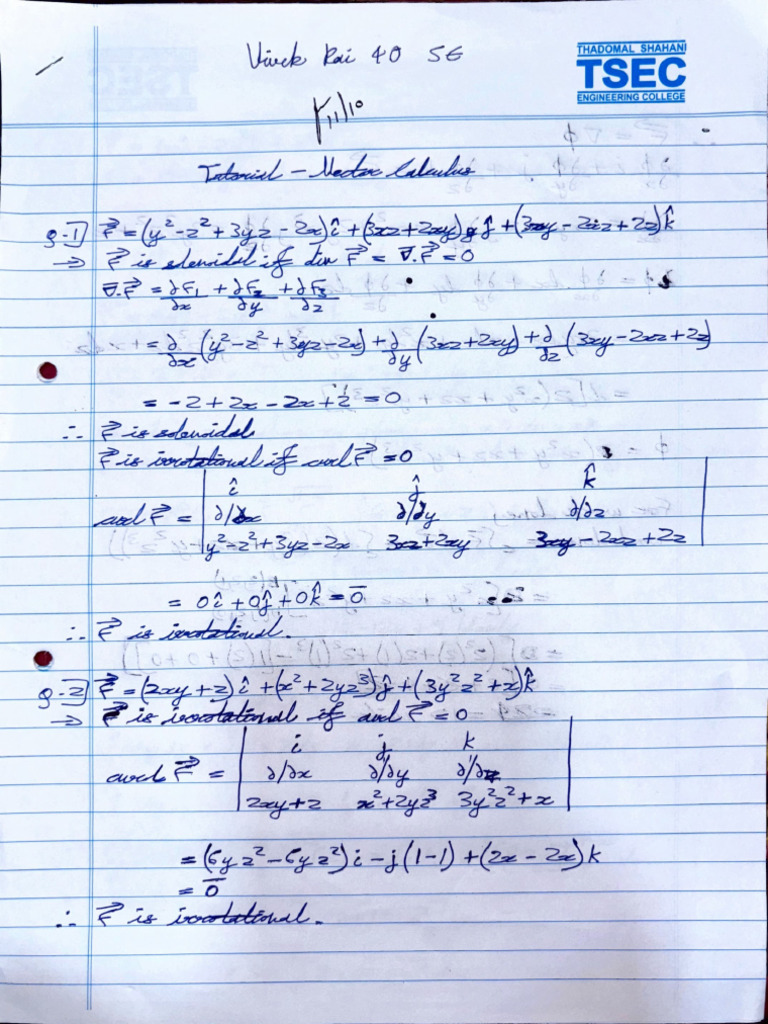 Vivek Rai 40 SE
THADOMAL SHAHANI
TSEC
ENGINEERING COLLEGE
11/10
Tutorial – Vector Calculus
Q-1] F⃗ = (y² - z² + 3yz - 2x) î + (3xz + 2xy) ĵ + (3xy - 2xz + 2z) k̂
→ F⃗ is solenoidal if div F⃗ = ∇.F⃗ = 0
∇.F⃗ = ∂F₁/∂x + ∂F₂/∂y + ∂F₃/∂z
= ∂/∂x (y² - z² + 3yz - 2x) + ∂/∂y (3xz + 2xy) + ∂/∂z (3xy - 2xz + 2z)
= -2 + 2x - 2x + 2 = 0
∴ F⃗ is solenoidal
F⃗ is irrotational if curl F⃗ = 0
î ĵ k̂
curl F⃗ = ∂/∂x ∂/∂y ∂/∂z
y² - z² + 3yz - 2x 3xz + 2xy 3xy - 2xz + 2z
= 0î + 0ĵ + 0k̂ = 0̄
∴ F⃗ is irrotational.
Q-2] F⃗ = (2xy + z) î + (x² + 2yz³) ĵ + (3y²z² + x) k̂
→ F⃗ is irrotational if curl F⃗ = 0
i j k
curl F⃗ = ∂/∂x ∂/∂y ∂/∂z
2xy + z x² + 2yz³ 3y²z² + x
= (6yz² - 6yz²) i - j (1 - 1) + (2x - 2x) k
= 0̄
∴ F⃗ is irrotational.